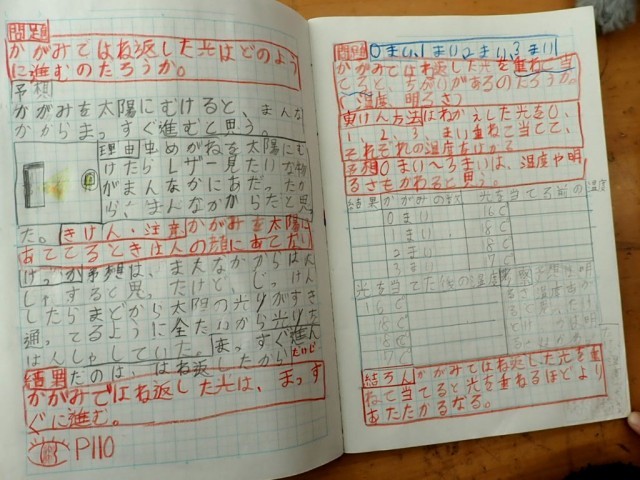 問題
かがみではね返した光はどのよう
に進むのだろうか。
予想
かがみを太陽にむけると、まんな
かからまっすぐ進むと思う。
理由虫めがねを太陽にむ
けたらレザー見たいな物
がまんなかにあたったか
ら、まんなかからだと思っ
た。きけん・注意かがみを太陽に
あててるときは人の顔にあてない
けっか予想は、まんなかからはん
しゃすると思ったけど、じっけん
したらまどから太陽の光りがすき
通ってるように全たいから光りを
はんしゃしていた。まっすぐ進ん
だのは、はね返したから
結果
かがみではね返した光は、まっす
ぐに進む。
P110
問題0まい、1まい2まい、3まい
かがみではね返した光を重ねて当
てると、ちがいがあるのだろうか。
(温度、明るさ)
実けん方法はねかえした光を0、
1、2、3、まい重ねて当てて、
それぞれの温度をはかる
予想0まい〜3まいは、温度や明
るさもかわると思う。
結果 かがみの数 光を当てる前の温度
0まい 16℃
1まい 18℃
2まい 18℃
3まい
光を当てた後の温度
結ろんかがみではね返した光を重
ねて当てると光を重ねるほどより
あたたかくなる。